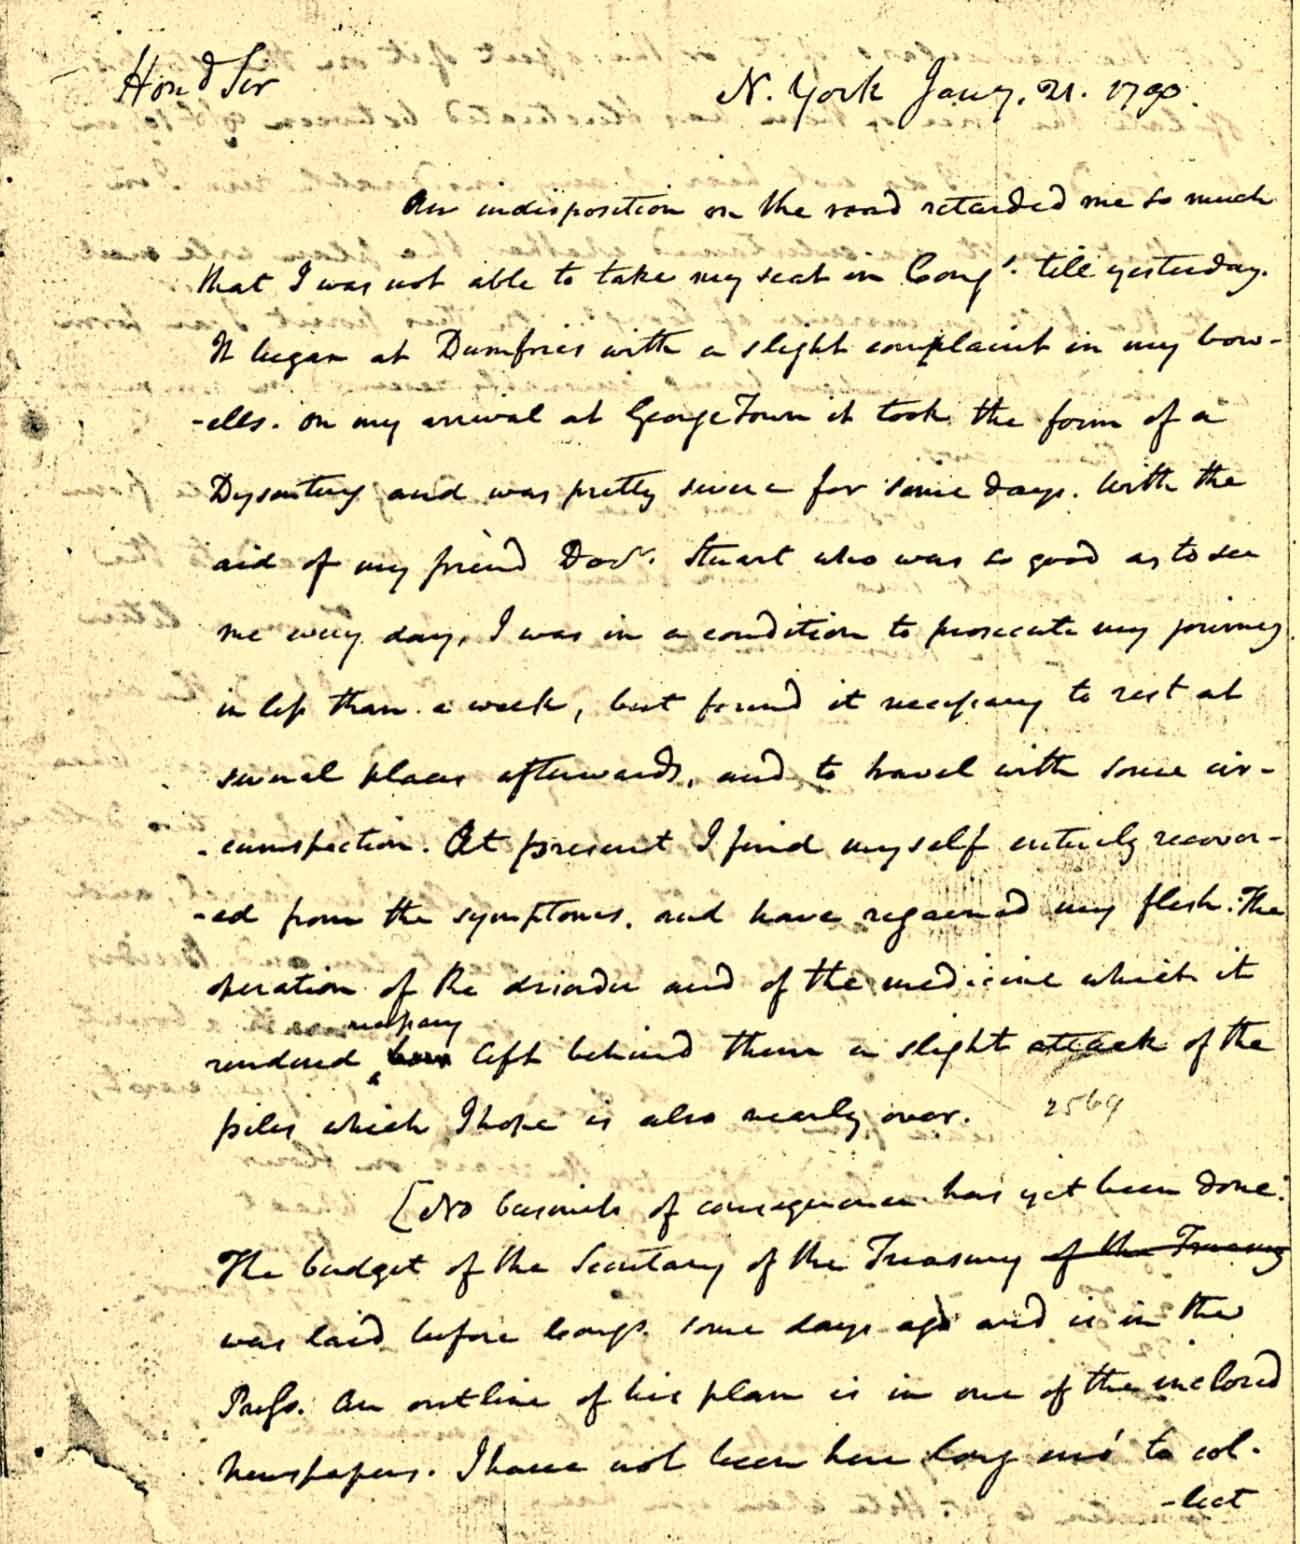 Hond Sir
N. York Jany. 21. 1790.
An indisposition on the road retarded me so much
that I was not able to take my seat in Congs. till yesterday.
It began at Dumfries with a slight complaint in my bow-
-ells. on my arrival at GeorgeTown it took the form of a
Dysentery and was pretty severe for some days. With the
aid of my friend Docr. Stuart who was so good as to see
me every day, I was in a condition to prosecute my journey
in less than a week, but found it necessary to rest at
several places afterwards, and to travel with some cir-
-cumspection. At present I find myself entirely recover-
-ed from the symptoms, and have regained my flesh. The
operation of the disorder and of the medicine which it
necessary
rendered left behind them a slight attack of the
piles which I hope is also nearly over. 2569
[No business of consequence has yet been done.
The budget of the Secretary of the Treasury of the Treasury
was laid before Congs. some days ago and is in the
Press. An outline of his plan is in one of the inclosed
newspapers. I have not been here long eno' to col-
-lect